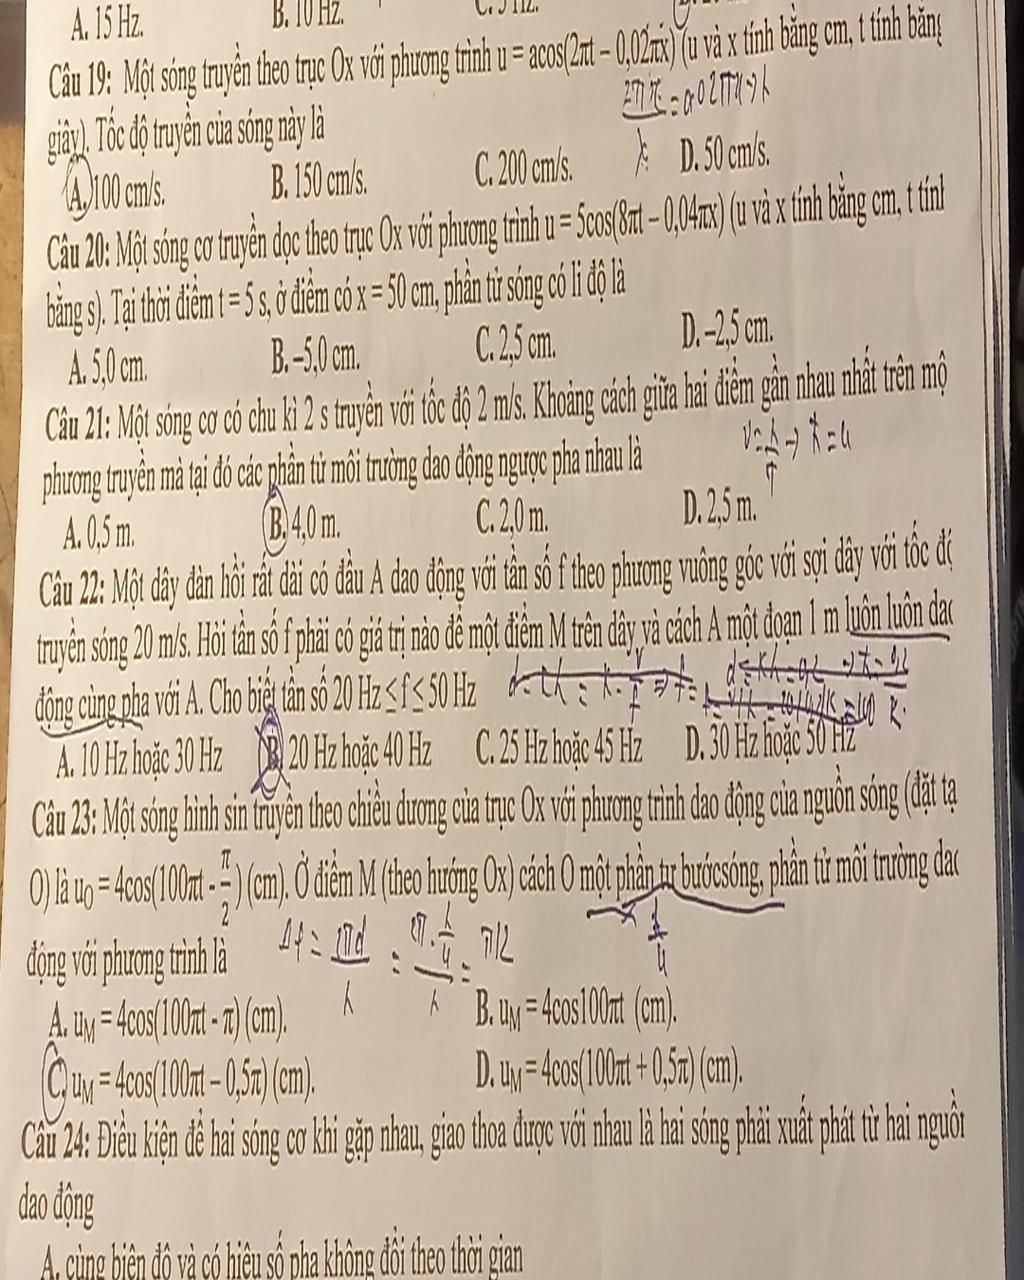 A. 15 Hz. B. 10 Hz. C. 5 Hz.
Câu 19: Một sóng truyền theo trục Ox với phương trình u = acos(2πt – 0,02πx) (u và x tính bằng cm, t tính bằng
giây). Tốc độ truyền của sóng này là
A. 100 cm/s. B. 150 cm/s. C. 200 cm/s. D. 50 cm/s.
Câu 20: Một sóng cơ truyền dọc theo trục Ox với phương trình u = 5cos(8πt – 0,04πx) (u và x tính bằng cm, t tính
bằng s). Tại thời điểm t = 5 s, ở điểm có x = 50 cm, phần tử sóng có li độ là
A. 5,0 cm. B. –5,0 cm. C. 2,5 cm. D. –2,5 cm.
Câu 21: Một sóng cơ có chu kì 2 s truyền với tốc độ 2 m/s. Khoảng cách giữa hai điểm gần nhau nhất trên mộ
v = λ/T → λ = 4
phương truyền mà tại đó các phần tử môi trường dao động ngược pha nhau là
A. 0,5 m. B. 4,0 m. C. 2,0 m. D. 2,5 m.
Câu 22: Một dây đàn hồi rất dài có đầu A dao động với tần số f theo phương vuông góc với sợi dây với tốc độ
truyền sóng 20 m/s. Hỏi tần số f phải có giá trị nào để một điểm M trên dây và cách A một đoạn 1 m luôn luôn dao
động cùng pha với A. Cho biết tần số 20 Hz ≤ f ≤ 50 Hz
A. 10 Hz hoặc 30 Hz B. 20 Hz hoặc 40 Hz C. 25 Hz hoặc 45 Hz D. 30 Hz hoặc 50 Hz
Câu 23: Một sóng hình sin truyền theo chiều dương của trục Ox với phương trình dao động của nguồn sóng (đặt tạ
O) là u₀ = 4cos(100πt - π/2) (cm). Ở điểm M (theo hướng Ox) cách O một phần tư bướcsóng, phần tử môi trường dao
λ/4
động với phương trình là
= 2πd/λ = 2π.λ/4/λ = π/2
A. uM = 4cos(100πt - π) (cm). B. uM = 4cos100πt (cm).
C. uM = 4cos(100πt – 0,5π) (cm). D. uM = 4cos(100πt + 0,5π) (cm).
Câu 24: Điều kiện để hai sóng cơ khi gặp nhau, giao thoa được với nhau là hai sóng phải xuất phát từ hai nguồn
dao động
A. cùng biên độ và có hiệu số pha không đổi theo thời gian